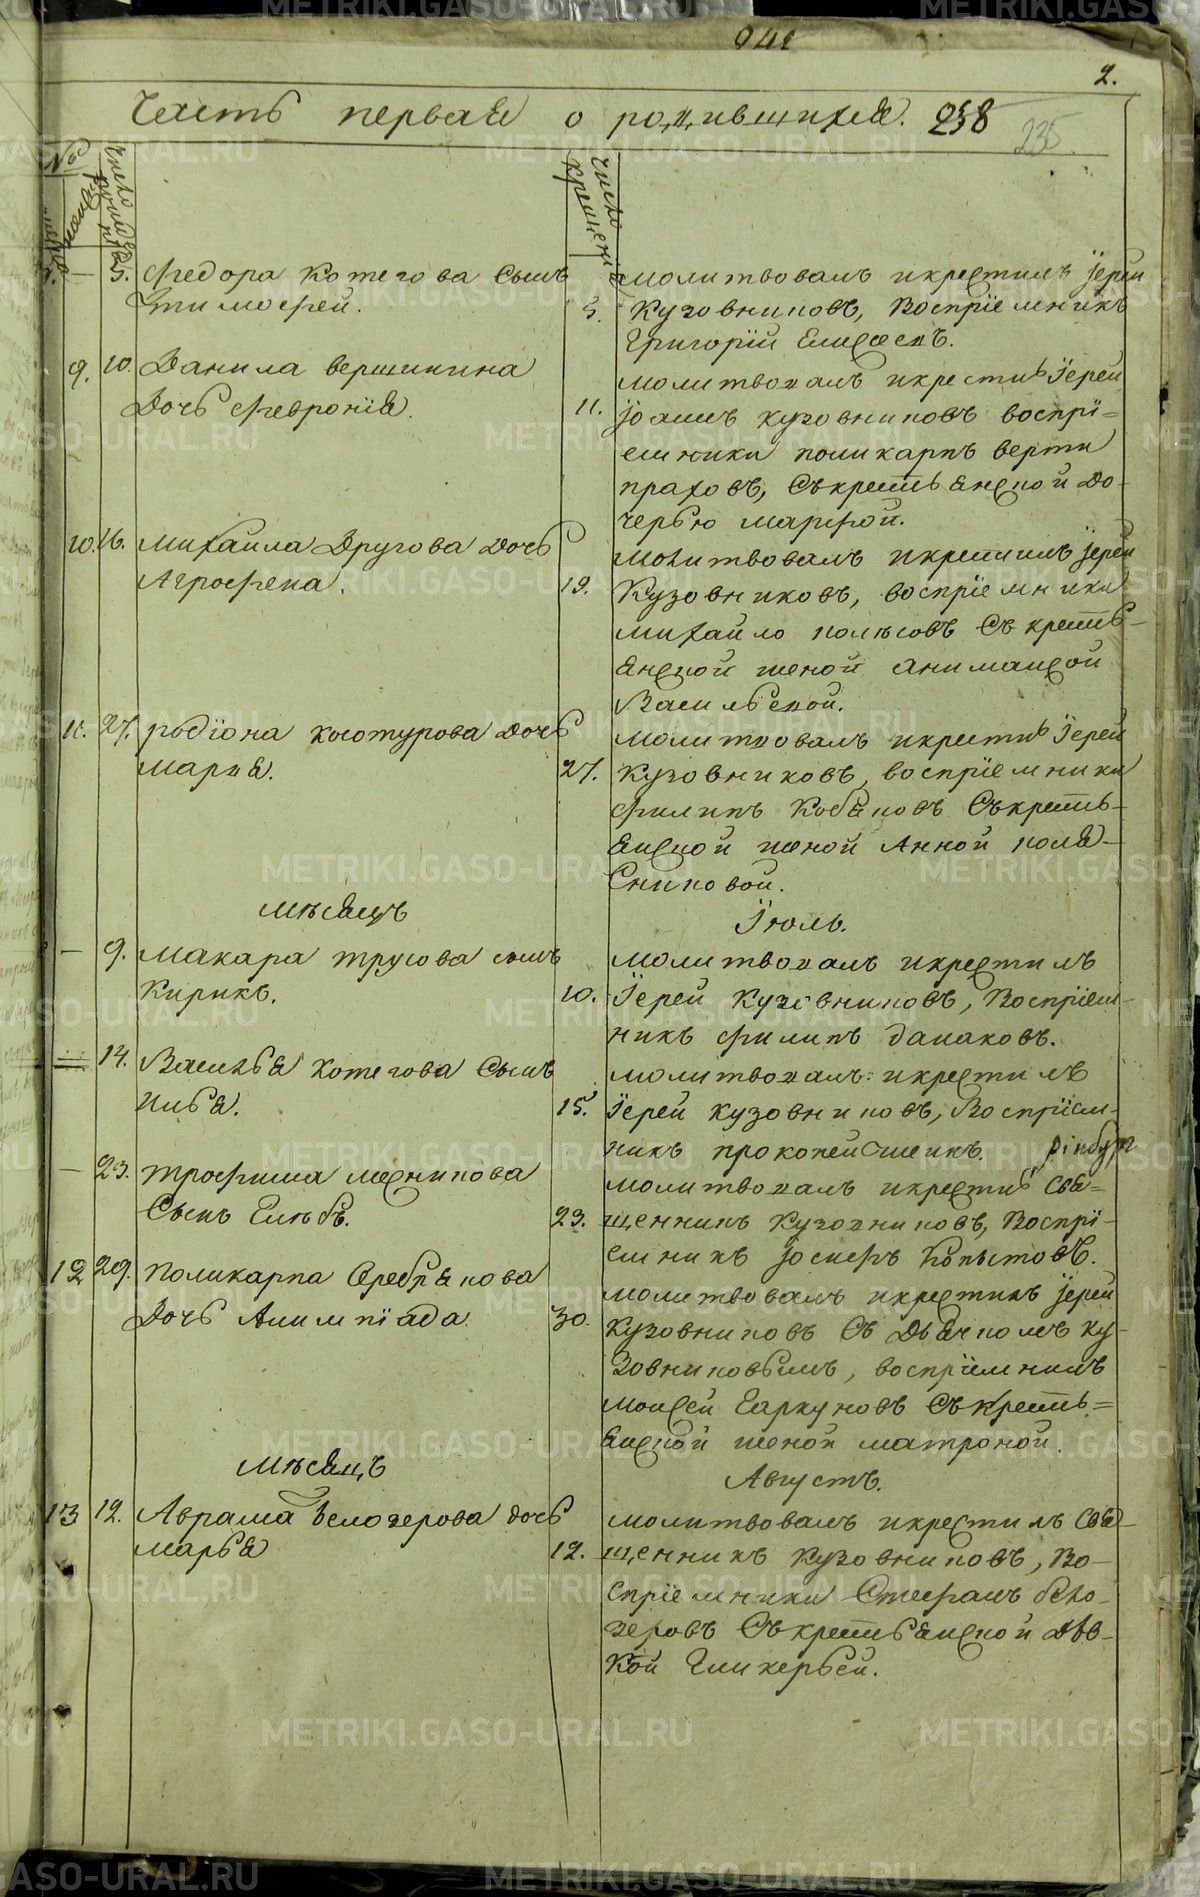 2.
Часть первая о родившихся. 238
235
Число крещени
25. Федора Котегова Сынъ
Тимофей.
5.
молитвовалъ икрестилъ їерей
Кузовниковъ, Воспрїемникъ
Григорїй
9. 10. Данила вершинина
Дочь Феврониа.
11.
молитвовалъ икрестилъ Їерей
Їоаннъ кузовниковъ воспрї=
емники поликарпъ верти
праховъ, Съкрестьянской до-
черью марфой.
10. 16. михаила Другова Дочь
Агрофена.
19.
молитвовалъ икрестилъ їерей
Кузовниковъ, воспрїемники
михайло полѣсовъ Съ кресть-
янской женой
Васильевной.
11. 27. родїона коютурова Дочь
мария.
27.
молитвовалъ икрестилъ Їерей
Кузовниковъ, воспрїемники
филипъ Кобяковъ Съкресть-
янской женой Анной поля-
сниковой.
мѣсяцъ Їюль.
— 9. макара трусова сынъ
Кирикъ.
10.
молитвовалъ икрестилъ
Їерей Кузовниковъ, Воспрїем-
никъ филипъ
14. Василья котегова Сынъ
Илья.
15.
молитвовалъ икрестилъ
Їерей кузовниковъ, Воспрїем-
никъ прокопей
— 23. трофима
Сынъ Глѣбъ.
23.
молитвовалъ икрестилъ свя=
щенникъ Кузовниковъ, Воспрї-
емникъ їосифъ Копытовъ.
12 29. поликарпа Серебрякова
Дочь Алимпїада.
30.
молитвовалъ икрестилъ їерей
кузовниковъ Съ Дьячкомъ ку-
зовниковымъ, воспрїемникъ
моисей Гаркуновъ Съкресть=
янской женой матроной.
мѣсяцъ Августъ.
13 12. Аврама Белозерова дочь
марья
12.
молитвовалъ икрестилъ свя-
щенникъ Кузовниковъ, Во-
спрїемники Стефанъ бело-
зеровъ Съкрестьянской дѣв-
кой Гликерьей.
METRIKI.GASO-URAL.RU